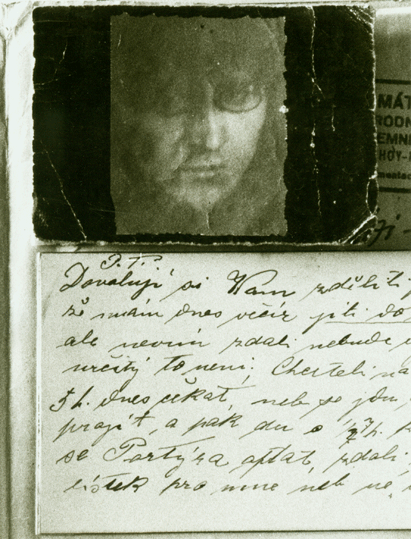 MÁT
RODN
EMNI
HOY-
P. T.
Dovoluji si Vám zděliti
že mám dnes večír jíti do
ale nevím zdali nebude
určitý to není. Chcete-li na
5 h. dnes čekat, neb se jdu
projít, a pak du o ½ 7 h.
se Portýra optat, zdali
lístek pro mne neb ne